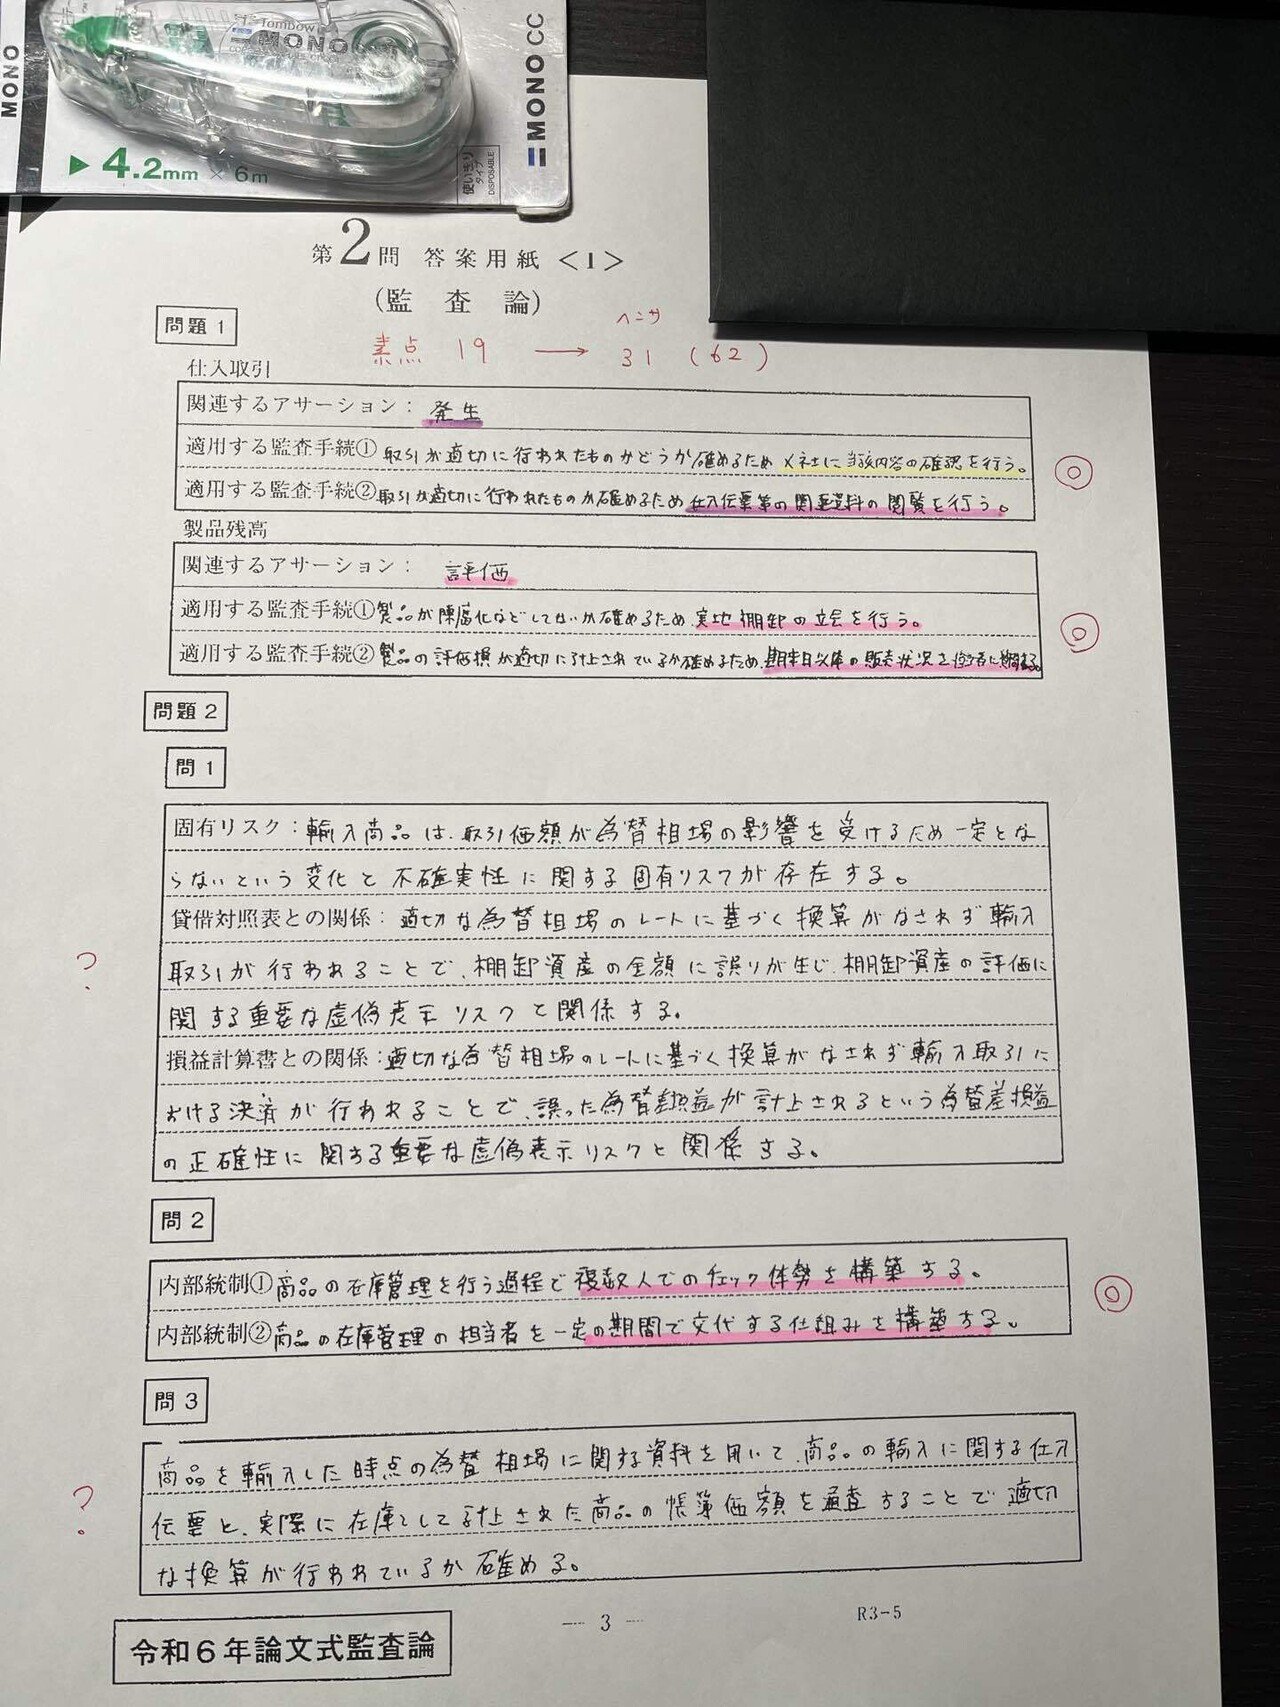 MONO
Tombow
MONO
4.2mm × 6m
使いきりタイプ
DISPOSABLE
MONO CC
第2問 答案用紙<1>
(監査論)
問題1
ヘンサ
素点 19 → 31 (62)
仕入取引
関連するアサーション: 発生
適用する監査手続① 取引が適切に行われたものかどうか確めるためメネ社に当該内容の確認を行う。
適用する監査手続② 取引が適切に行われたものか確めるため仕入伝票等の関連資料の閲覧を行う。
製品残高
関連するアサーション: 評価
適用する監査手続① 製品が陳腐化などしてないか確めるため、実地棚卸の立会を行う。
適用する監査手続② 製品の評価損が適切に計上されているか確めるため、期末日以降の販売状況を
問題2
問1
固有リスク: 輸入商品は、取引価額が為替相場の影響を受けるため一定とな
らないという変化と不確実性に関する固有リスクが存在する。
貸借対照表との関係: 適切な為替相場のレートに基づく換算がなされず輸入
?
取引が行われることで、棚卸資産の金額に誤りが生じ、棚卸資産の評価に
関する重要な虚偽表示リスクと関係する。
損益計算書との関係: 適切な為替相場のレートに基づく換算がなされず輸入取引に
おける決済が行われることで、誤った為替差損益が計上されるという為替差損益
の正確性に関する重要な虚偽表示リスクと関係する。
問2
内部統制① 商品の在庫管理を行う過程で複数人でのチェック体勢を構築する。
内部統制② 商品の在庫管理の担当者を一定の期間で交代する仕組みを構築する。
問3
商品を輸入した時点の為替相場に関する資料を用いて、商品の輸入に関する仕入
?
伝票と、実際に在庫として計上された商品の帳簿価額を通査することで適切
な換算が行われているか確める。
— 3 —
R3-5
令和6年論文式監査論